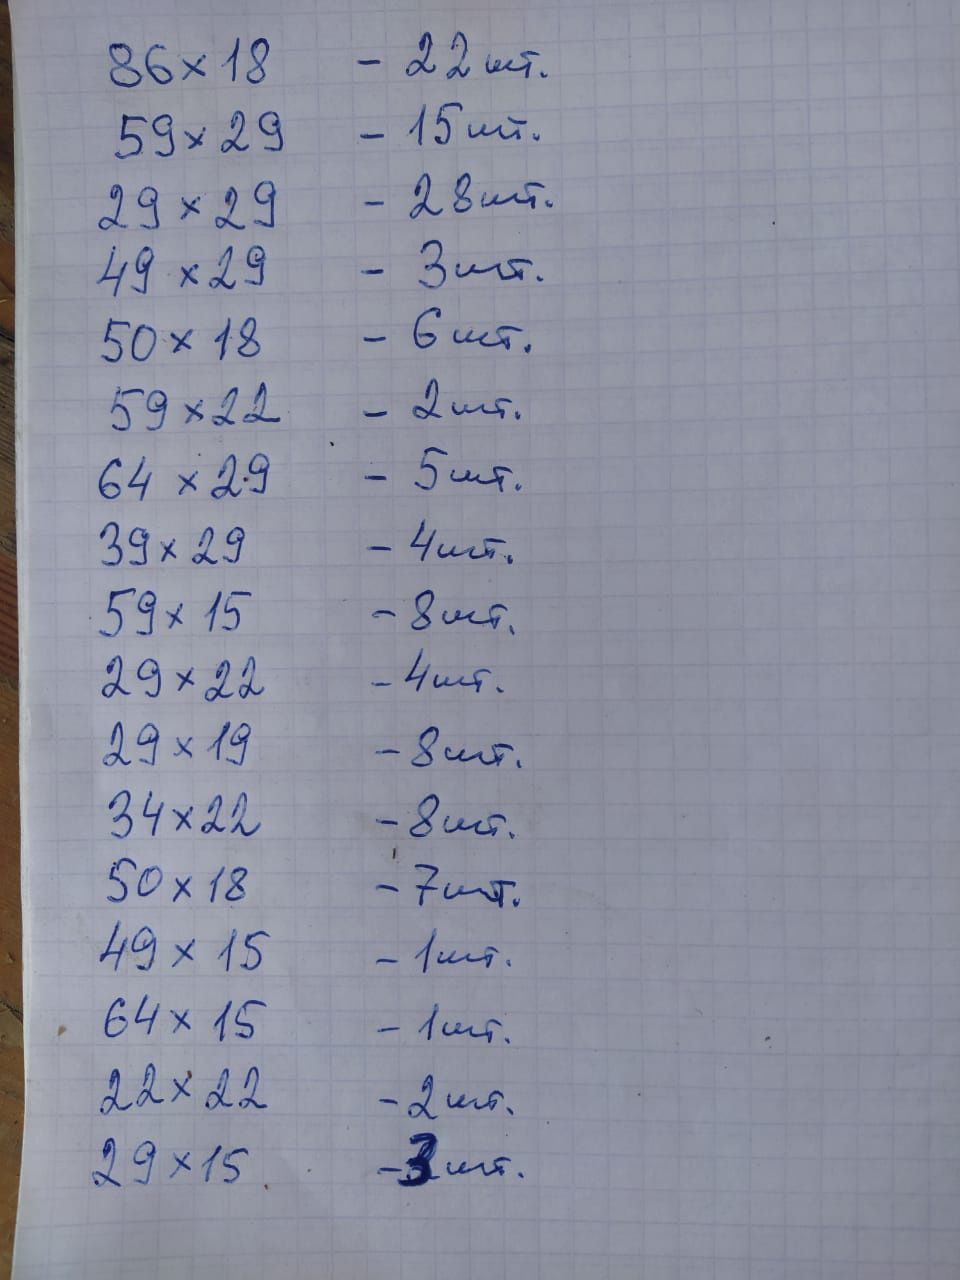 86×18 - 22шт.
59×29 - 15шт.
29×29 - 28шт.
49×29 - 3шт.
50×18 - 6шт.
59×22 - 2шт.
64×29 - 5шт.
39×29 - 4шт.
59×15 - 8шт.
29×22 - 4шт.
29×19 - 8шт.
34×22 - 8шт.
50×18 - 7шт.
49×15 - 1шт.
64×15 - 1шт.
22×22 - 2шт.
29×15 - 3шт.